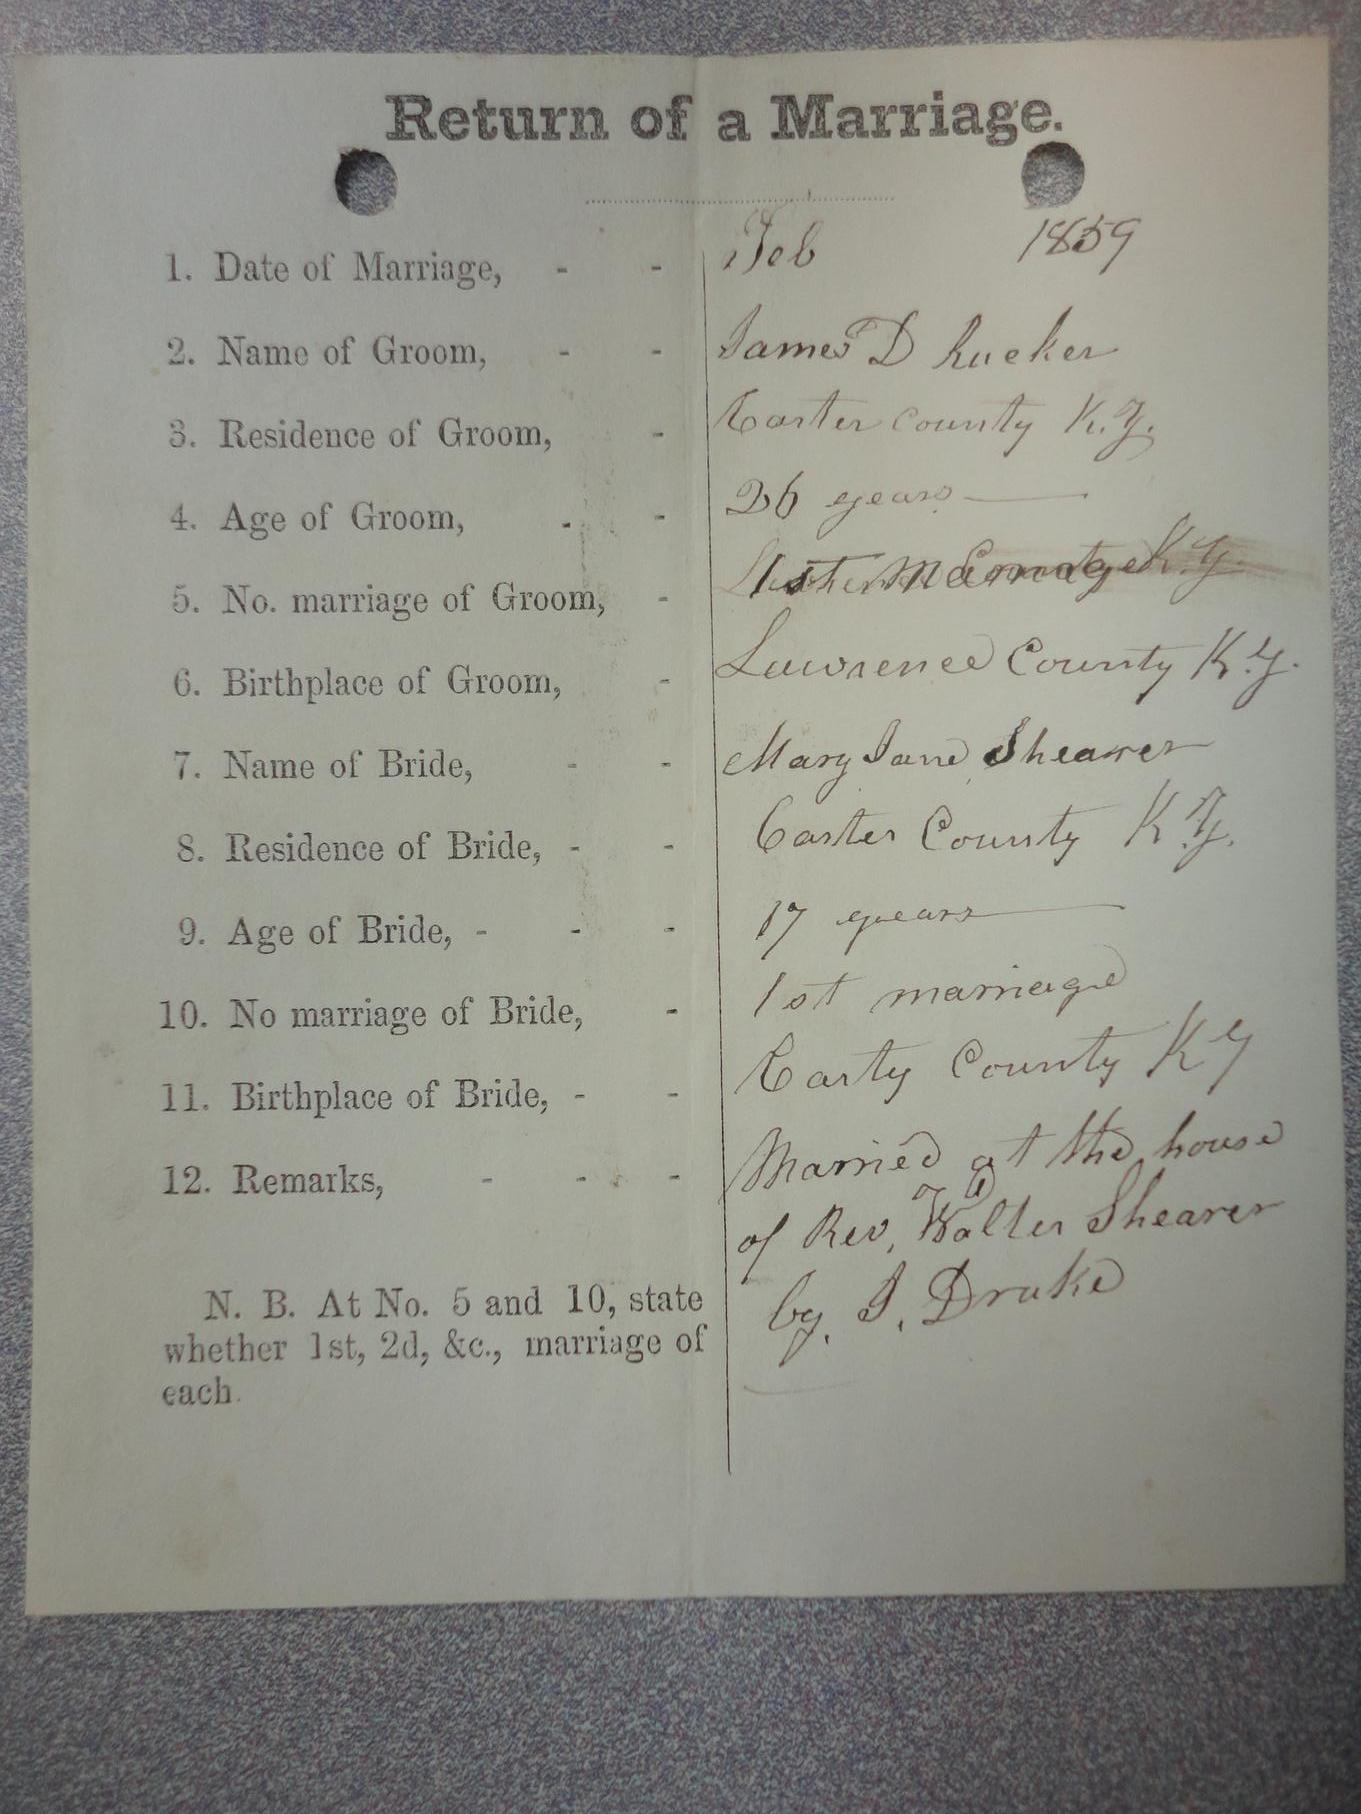 Return of a Marriage.
1. Date of Marriage, - - Feb 1859
2. Name of Groom, - - James D Rucker
3. Residence of Groom, - Carter County K.Y.
4. Age of Groom, - - 26 years
5. No. marriage of Groom, - 1st Marriage K.Y.
6. Birthplace of Groom, - Lawrence County K.Y.
7. Name of Bride, - - Mary Jane Shearer
8. Residence of Bride, - - Carter County K.Y.
9. Age of Bride, - - - 17 years
10. No marriage of Bride, - 1st marriage
11. Birthplace of Bride, - - County KY
12. Remarks, - - - Married at the house
of Rev, Walter Shearer
by, J, Drake
N. B. At No. 5 and 10, state
whether 1st, 2d, &c., marriage of
each.